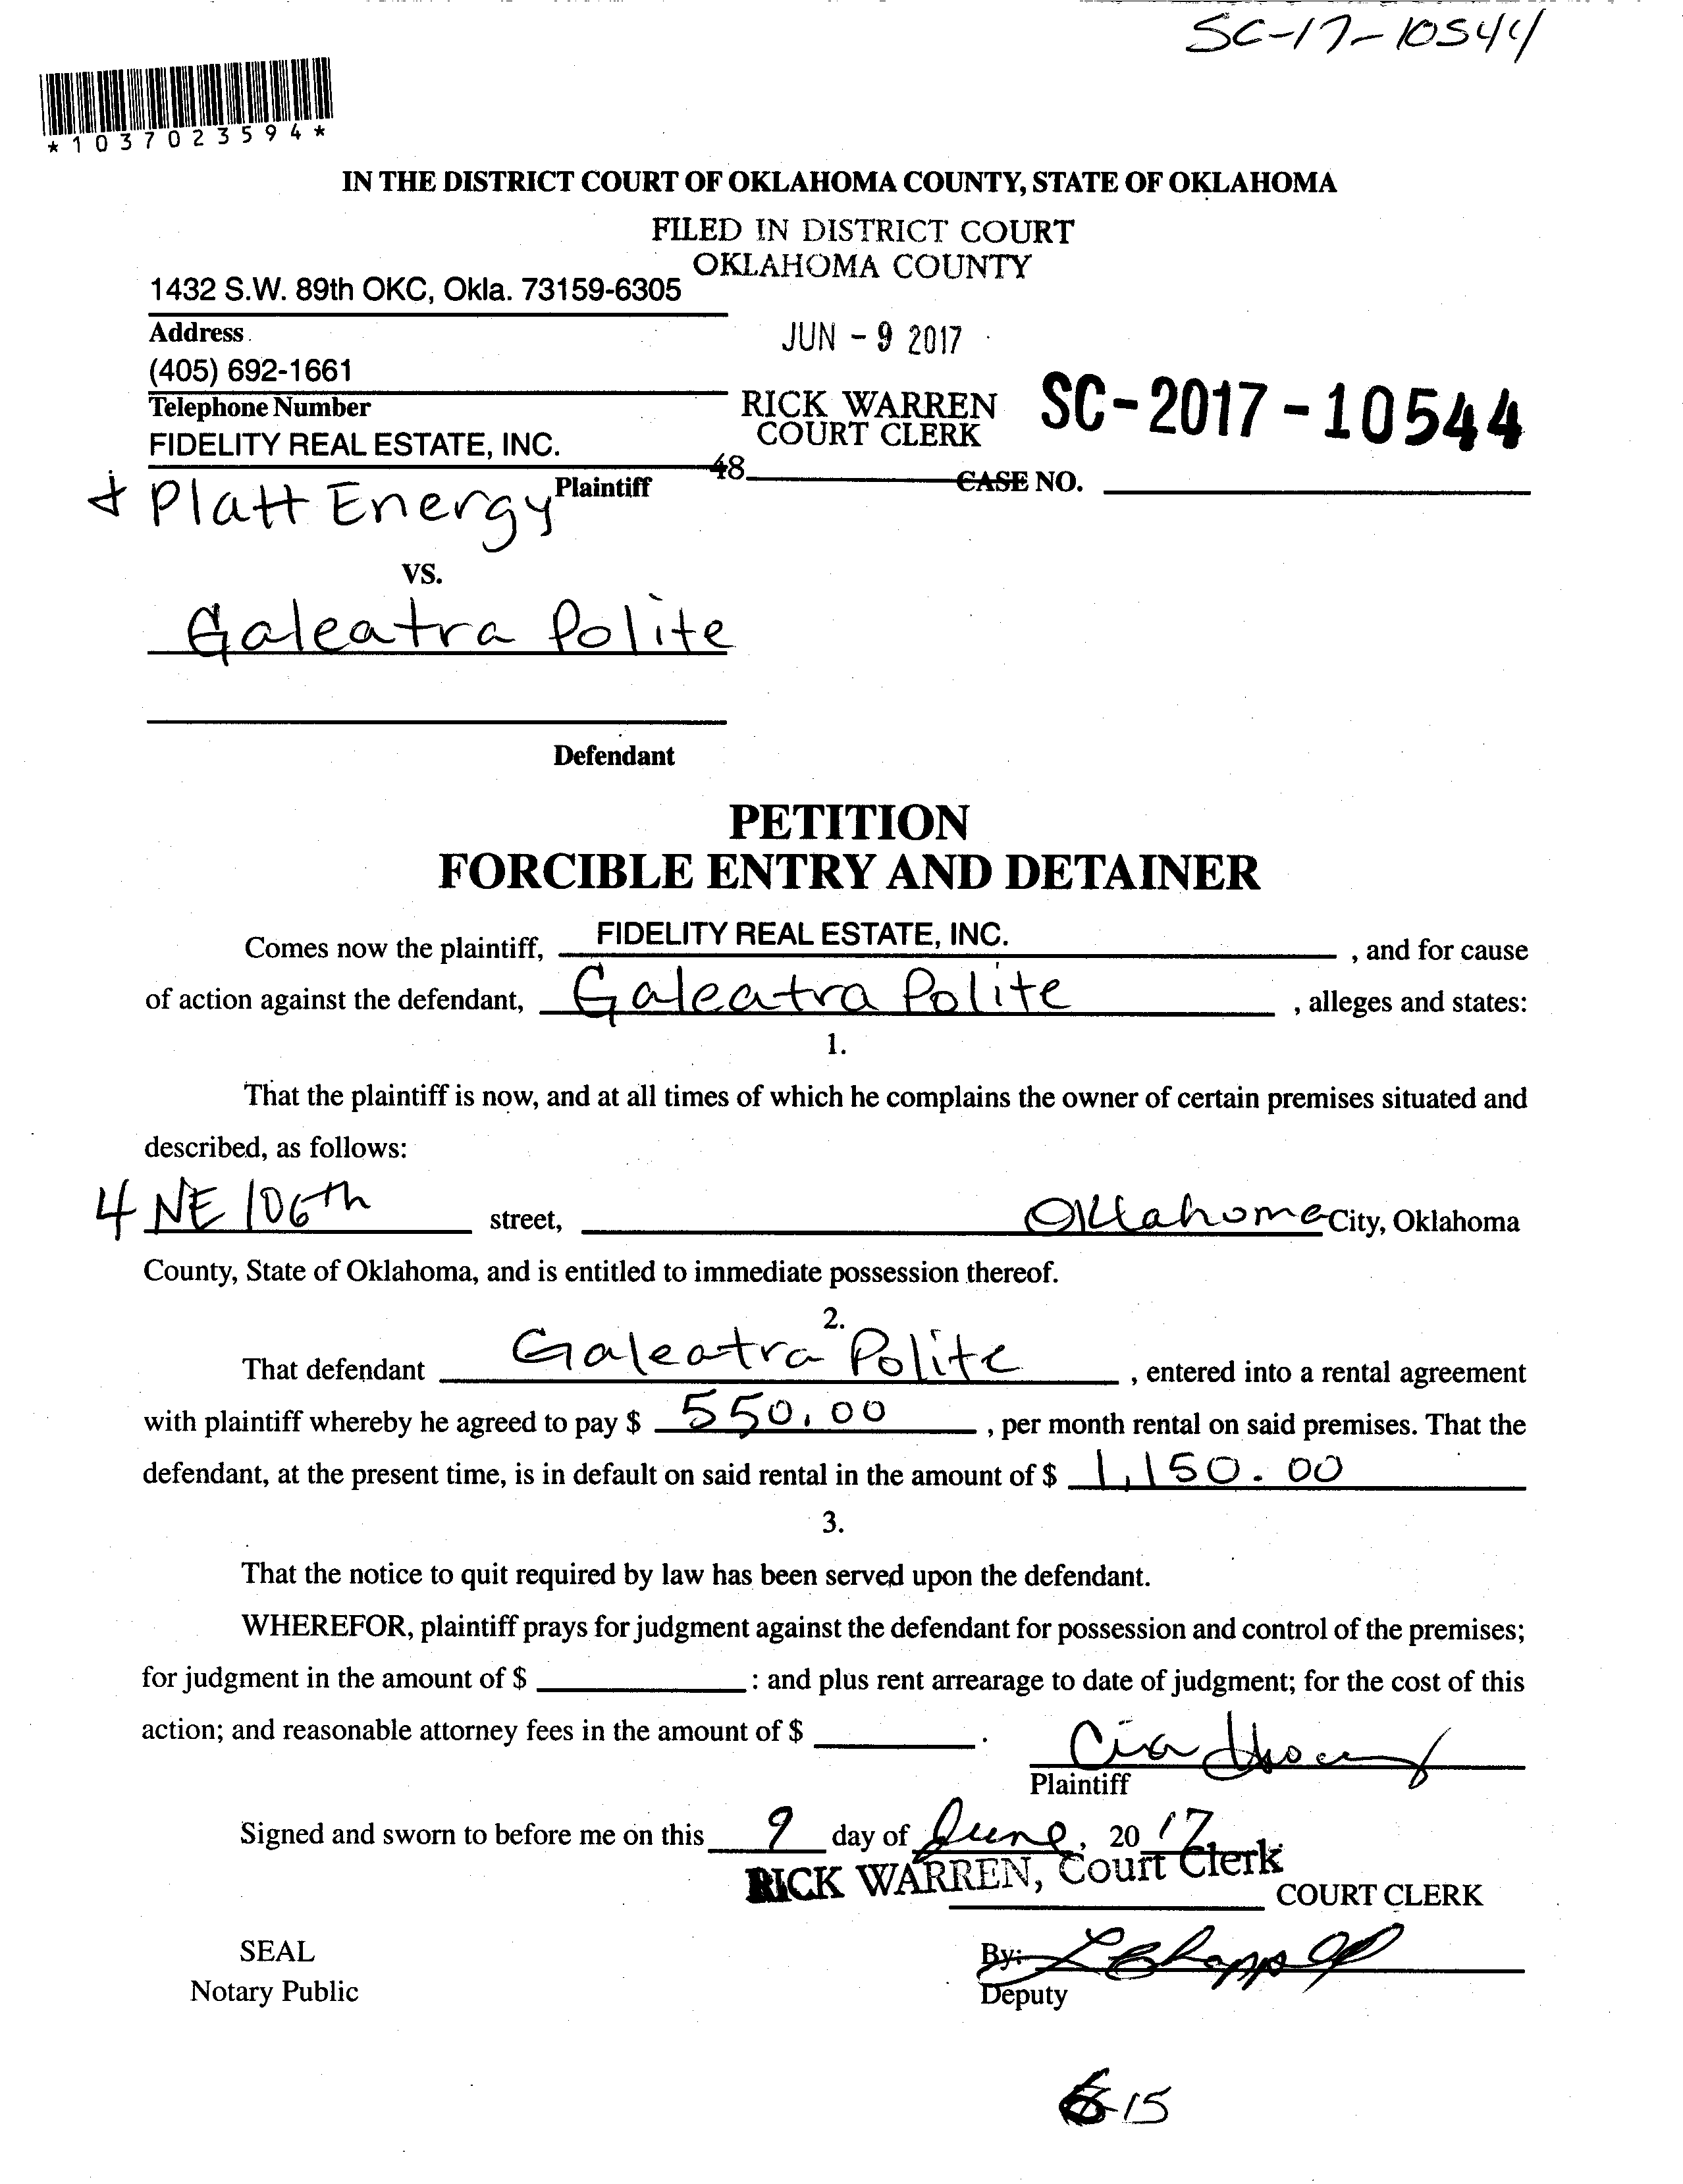 SC-17-10544
*1037023594*
IN THE DISTRICT COURT OF OKLAHOMA COUNTY, STATE OF OKLAHOMA
FILED IN DISTRICT COURT
OKLAHOMA COUNTY
1432 S.W. 89th OKC, Okla. 73159-6305
Address
JUN - 9 2017
(405) 692-1661
Telephone Number
RICK WARREN
COURT CLERK
SC-2017-10544
FIDELITY REAL ESTATE, INC.
48
CASE NO.
Plaintiff
+ Platt Energy
VS.
Galeatra Polite
Defendant
PETITION
FORCIBLE ENTRY AND DETAINER
Comes now the plaintiff, FIDELITY REAL ESTATE, INC. , and for cause
of action against the defendant, Galeatra Polite , alleges and states:
1.
That the plaintiff is now, and at all times of which he complains the owner of certain premises situated and
described, as follows:
4 NE 106th street, Oklahoma City, Oklahoma
County, State of Oklahoma, and is entitled to immediate possession thereof.
2.
That defendant Galeatra Polite , entered into a rental agreement
with plaintiff whereby he agreed to pay $ 550.00 , per month rental on said premises. That the
defendant, at the present time, is in default on said rental in the amount of $ 1,150.00
3.
That the notice to quit required by law has been served upon the defendant.
WHEREFOR, plaintiff prays for judgment against the defendant for possession and control of the premises;
for judgment in the amount of $ : and plus rent arrearage to date of judgment; for the cost of this
action; and reasonable attorney fees in the amount of $ .
Plaintiff
Signed and sworn to before me on this 9 day of June, 2017
RICK WARREN, Court Clerk
COURT CLERK
SEAL
Notary Public
By:
Deputy
6-15